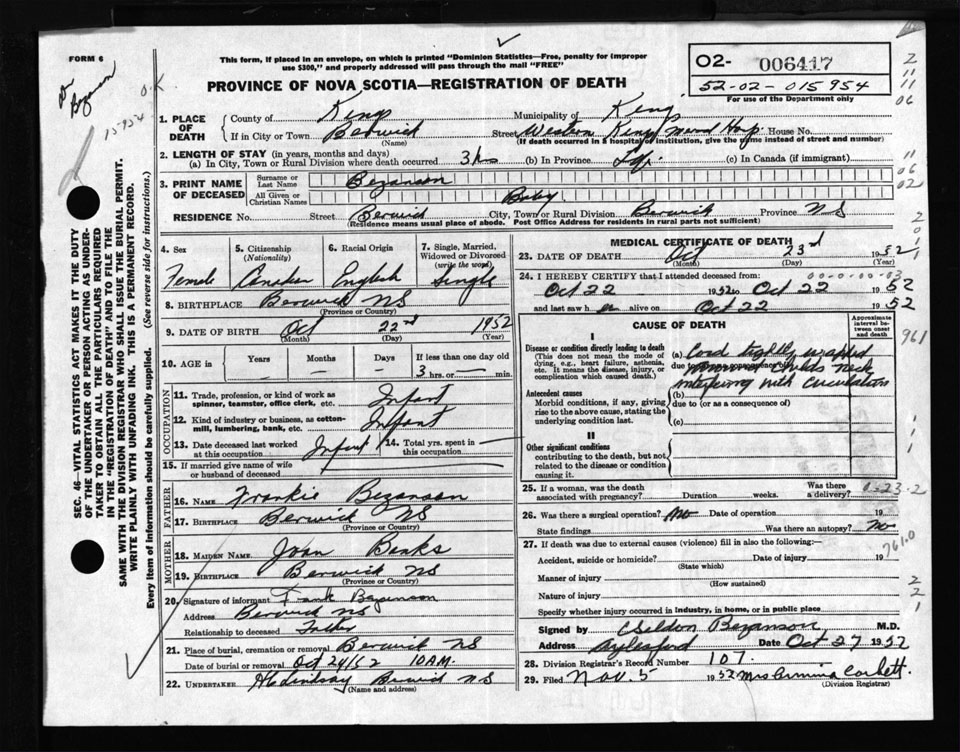 FORM 6
This form, if placed in an envelope, on which is printed "Dominion Statistics—Free, penalty for improper
use $300," and properly addressed will pass through the mail "FREE"
O2- 006417
52-02-015954
For use of the Department only
PROVINCE OF NOVA SCOTIA—REGISTRATION OF DEATH
O.K
Bezanson
15954
SEC. 46—VITAL STATISTICS ACT MAKES IT THE DUTY
OF THE UNDERTAKER OR PERSON ACTING AS UNDER-
TAKER TO OBTAIN ALL THE PARTICULARS REQUIRED
IN THE "REGISTRATION OF DEATH" AND TO FILE THE
SAME WITH THE DIVISION REGISTRAR WHO SHALL ISSUE THE BURIAL PERMIT.
WRITE PLAINLY WITH UNFADING INK. THIS IS A PERMANENT RECORD.
Every item of information should be carefully supplied. (See reverse side for instructions.)
1. PLACE OF DEATH
County of Kings Municipality of Kings
If in City or Town Berwick Street Western Kings Memorial Hosp. House No.
(Name) (If death occurred in a hospital or institution, give the name instead of street and number)
2. LENGTH OF STAY (in years, months and days)
(a) In City, Town or Rural Division where death occurred 3 hrs (b) In Province (c) In Canada (if immigrant)
3. PRINT NAME OF DECEASED
Surname or Last Name Bezanson
All Given or Christian Names Baby
RESIDENCE No. Street Berwick City, Town or Rural Division Berwick Province NS
(Residence means usual place of abode. Post Office Address for residents in rural parts not sufficient)
4. Sex Female
5. Citizenship (Nationality) Canadian
6. Racial Origin English
7. Single, Married, Widowed or Divorced (write the word) Single
8. BIRTHPLACE Berwick NS
(Province or Country)
9. DATE OF BIRTH Oct 22nd 1952
(Month) (Day) (Year)
10. AGE in Years Months Days If less than one day old
3 hrs. or — min.
OCCUPATION
11. Trade, profession, or kind of work as spinner, teamster, office clerk, etc. Infant
12. Kind of industry or business, as cotton-mill, lumbering, bank, etc. Infant
13. Date deceased last worked at this occupation Infant 14. Total yrs. spent in this occupation —
15. If married give name of wife or husband of deceased
FATHER
16. NAME Frankie Bezanson
17. BIRTHPLACE Berwick NS
(Province or Country)
MOTHER
18. MAIDEN NAME Joan Banks
19. BIRTHPLACE Berwick NS
(Province or Country)
20. Signature of informant Frank Bezanson
Address Berwick NS
Relationship to deceased Father
21. Place of burial, cremation or removal Berwick NS
Date of burial or removal Oct 24/52 10 AM.
22. UNDERTAKER Lindsay Berwick NS
(Name and address)
MEDICAL CERTIFICATE OF DEATH
23. DATE OF DEATH Oct 23rd 1952
(Month) (Day) (Year)
24. I HEREBY CERTIFY that I attended deceased from:
Oct 22 1952 to Oct 22 1952
and last saw h er alive on Oct 22 1952
CAUSE OF DEATH
Approximate interval between onset and death
I
Disease or condition directly leading to death
(This does not mean the mode of dying, e.g., heart failure, asthenia, etc. It means the disease, injury, or complication which caused death.)
(a) Cord tightly wrapped
due to (or as a consequence of)
around childs neck
(b) interfering with circulation
Antecedent causes
Morbid conditions, if any, giving rise to the above cause, stating the underlying condition last.
due to (or as a consequence of)
(c)
II
Other significant conditions
contributing to the death, but not related to the disease or condition causing it.
25. If a woman, was the death associated with pregnancy? Duration weeks. Was there a delivery?
26. Was there a surgical operation? No Date of operation 19
State findings Was there an autopsy? No
27. If death was due to external causes (violence) fill in also the following:—
Accident, suicide or homicide? Date of injury 19
(State which)
Manner of injury
(How sustained)
Nature of injury
Specify whether injury occurred in industry, in home, or in public place
Signed by Bezanson M.D.
Address Aylesford Date Oct 27 1952
28. Division Registrar's Record Number 107.
29. Filed Nov. 5 1952 Mrs Ermina Corbett.
(Division Registrar)
961
761.0